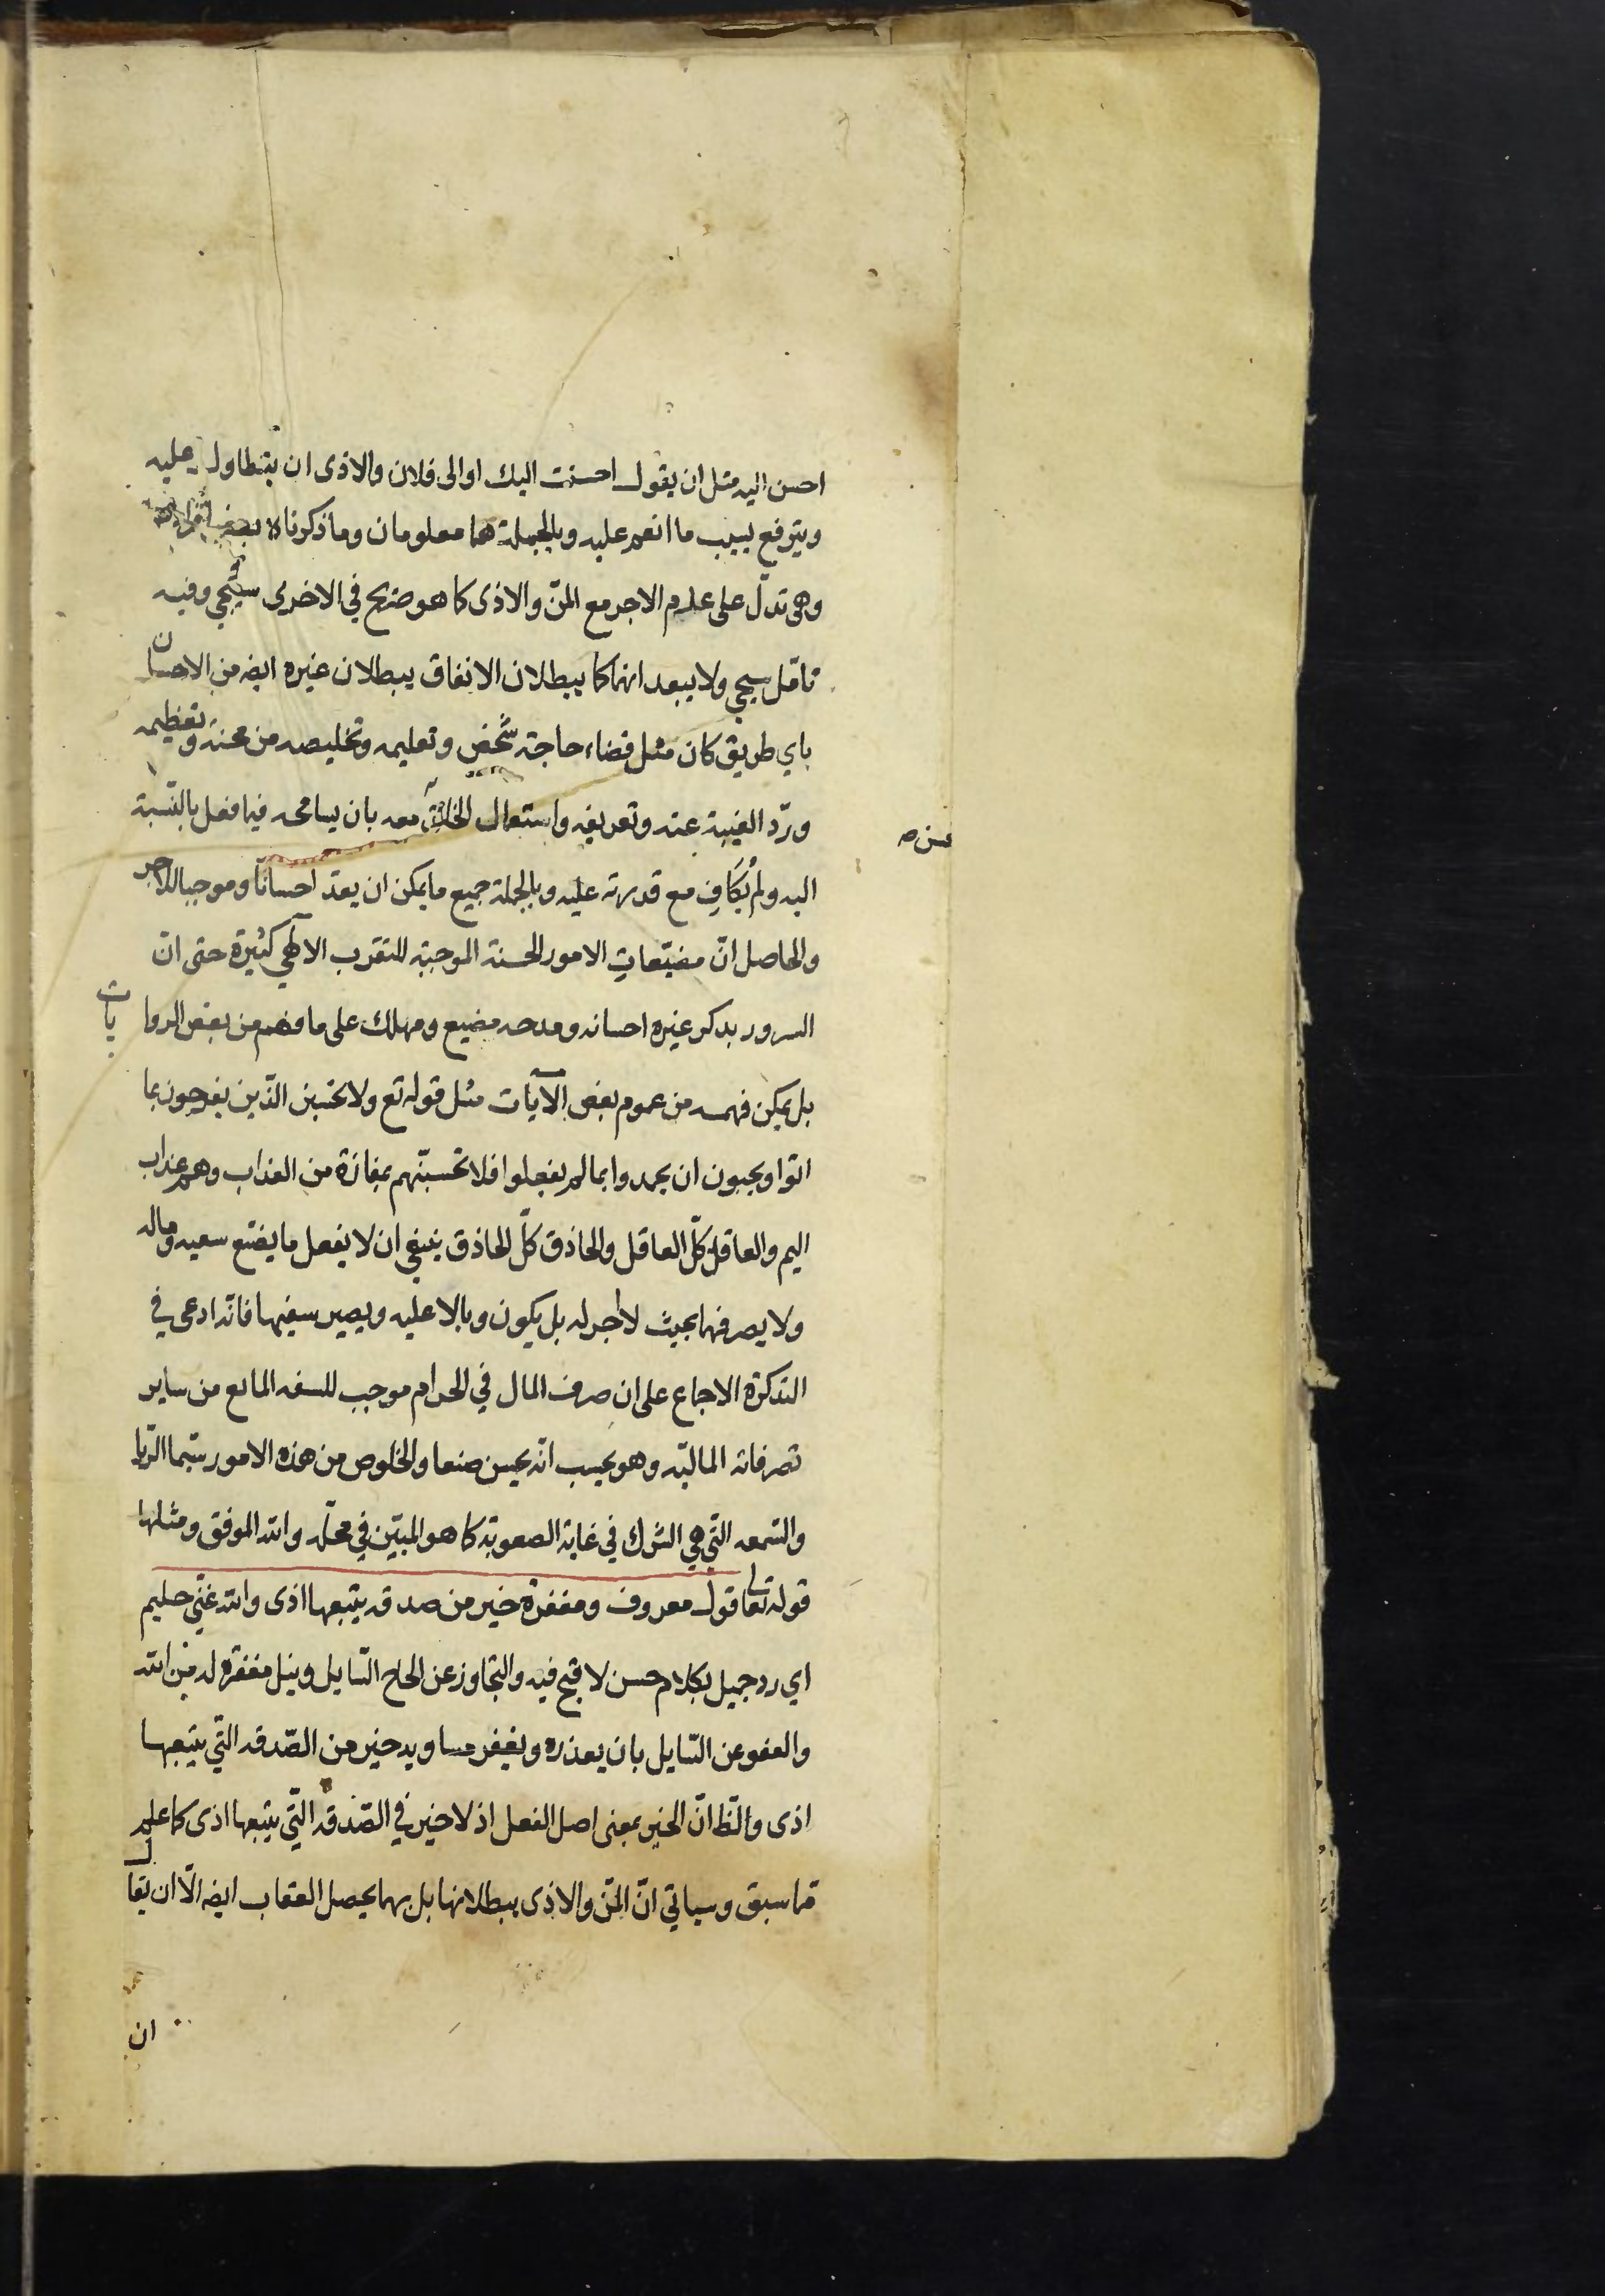 احسن اليه مثل ان يقول احسنت اليك او الى فلان والاذى ان يتطاول عليه
ويترفع بسبب ما انعم عليه وبالجملة هما معلومان وما ذكرناه بعض
وهى تدلّ على عدم الاجر مع المنّ والاذى كما هو صريح في الاخرى سيجي وفيه
تامّل سيجي ولا يبعد انهما كما يبطلان الانفاق يبطلان غيره ايضه من الاحسان
باي طريق كان مثل قضاء حاجة شخص وتعليمه وتخليصه من محنة وتعظيمه
وردّ الغيبة عنه وتعريفه واستعمال الخلق معه بان يسامحه فيما فعل بالنّسبة
حسن صه
اليه ولم يُكَافِ مع قدرته عليه وبالجملة جميع ما يمكن ان يعدّ احسانًا وموجبا للاجر
والحاصل انّ مضيّعات الامور الحسنة الموجبة للتقرب الالهي كثيرة حتى انّ
السرور بذكر غيره احسانه ومدحه مضيع ومهلك على ما فهم من بعض الروايات
بل يمكن فهمه من عموم بعض الآيات مثل قوله تع ولا تحسبن الّذين يفرحون بما
اتوا ويحبون ان يحمدوا بما لم يفعلوا فلا تحسبنّهم بمفازة من العذاب وهم عذاب
اليم والعاقل كلّ العاقل والحاذق كلّ الحاذق ينبغي ان لا يفعل ما يضيّع سعيه وماله
ولا يصرفهما بحيث لا اجر له بل يكون وبالا عليه ويصير سفيها فانّه ادعى في
التذكرة الاجماع على ان صرف المال في الحرام موجب للسفه المانع من ساير
تصرفاته الماليّه وهو يحسب انّه يحسن صنعا والخلوص من هذه الامور سيّما الرّيا
والسّمعه التّي هي الشرك في غاية الصعوبة كما هو المبيّن في محلّه والله الموفق ومثلها
قوله تعالى قول معروف ومغفرة خير من صدقه يتبعها اذى والله غنّي حليم
اي رد جميل بكلام حسن لا قبح فيه والتجاوز عن الحاح السّايل ونيل مغفرة له من الله
والعفو عن السّايل بان يعذره ويغفر مساويه خير من الصّدقه التّي يتبعها
اذى والظّ انّ الخير بمعنى اصل الفعل اذ لا خير في الصّدقه التّي يتبعها اذى كما علم
ممّا سبق وسياتي انّ المنّ والاذى يبطلانها بل بهما يحصل العقاب ايضه الّا ان يقال
ان